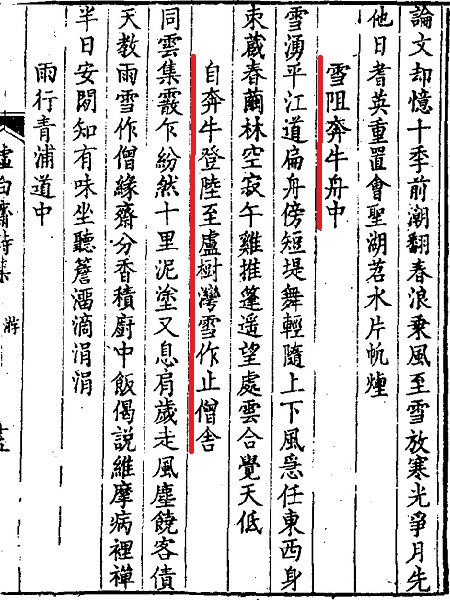 論文却憶十年前潮翻春浪乗風至雪放寒光爭月先
他日耆英重置會聖湖茗水片帆煙
雪阻奔牛舟中
雪湧平江道扁舟傍短堤舞輕隨上下風急任東西身
裘蔵春繭林空寂午雞推篷遥望處雲合覺天低
自奔牛登陸至盧樹灣雪作止僧舎
同雲集霰乍紛然十里泥塗又息肩歲走風塵饒客債
天教雨雪作僧緣齋分香積廚中飯偈說維摩病裡禪
半日安閒知有味坐聽簷溜滴涓涓
雨行青浦道中
虛白齋詩集